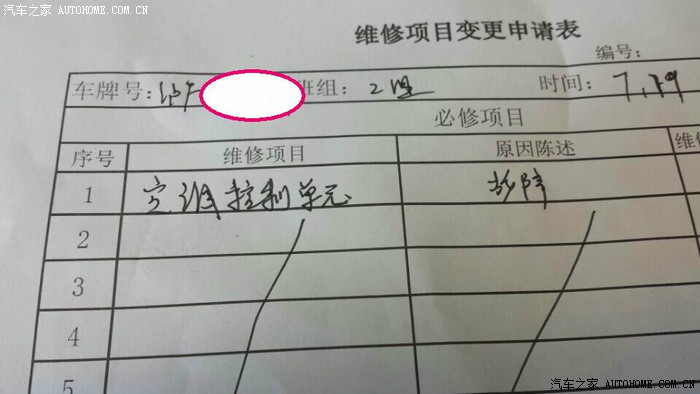 汽车之家 AUTOHOME.COM.CN
维修项目变更申请表
编号:
车牌号: 沪 班组: 2组 时间: 7.19
必修项目
序号 维修项目 原因陈述 维
1 空调控制单元 故障
2
3
4
5
汽车之家 AUTOHOME.COM.CN